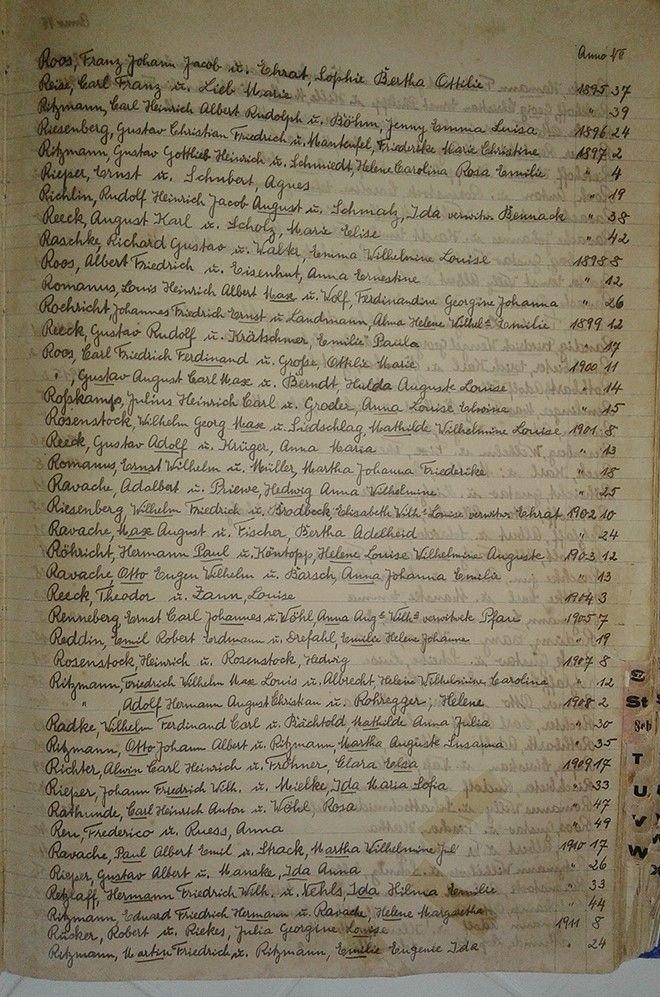 Anno №
Roos, Franz Johann Jacob u. Ehrat, Sophie Bertha Ottilie 1895 37
Reise, Carl Franz u. Lieb Marie " 39
Ritzmann, Carl Heinrich Albert Rudolph u. Böhm, Jenny Emma Luisa 1896 24
Riesenberg, Gustav Christian Friedrich u. Manteufel, Friederike Marie Christine 1897 2
Ritzmann, Gustav Gottlieb Heinrich u. Schmiedt, Helene Carolina Rosa Emilie " 4
Rieper, Ernst u. Schubert, Agnes " 19
Richlin, Rudolf Heinrich Jacob August u. Schmalz, Ida verwitw. Bennack " 38
Reeck, August Karl u. Scholz, Marie Elise " 42
Raschke, Richard Gustav u. Walter, Emma Wilhelmine Louise 1898 8
Roos, Albert Friedrich u. Eisenhut, Anna Ernestine " 12
Romanus, Louis Heinrich Albert Max u. Wolf, Ferdinandine Georgine Johanna " 26
Rochricht, Johannes Friedrich Ernst u. Landmann, Alma Helene Wilhelᵉ Emilie 1899 12
Reeck, Gustav Rudolf u. Krätschmer, Emilie Paula " 17
Roos, Carl Friedrich Ferdinand u. Große, Ottilie Marie 1900 11
" , Gustav August Carl Max u. Berndt, Hulda Auguste Louise " 14
Roßkamp, Julius Heinrich Carl u. Groder, Anna Louise " 15
Rosenstock, Wilhelm Georg Max u. Liedschlag, Mathilde Wilhelmine Louise 1901 8
Reeck, Gustav Adolf u. Krüger, Anna Maria " 13
Romanus, Ernst Wilhelm u. Müller, Martha Johanna Friederike " 18
Ravache, Adalbert u. Priewe, Hedwig Anna Wilhelmine " 25
Riesenberg, Wilhelm Friedrich u. Brodbeck, Elisabeth Wilhᵉ Louise verwitw. Ehrat 1902 10
Ravache, Max August u. Fischer, Bertha Adelheid " 24
Röhricht, Hermann Paul u. Köntopp, Helene Louise Wilhelmine Auguste 1903 12
Ravache, Otto Eugen Wilhelm u. Barsch, Anna Johanna Emilie " 13
Reeck, Theodor u. Zann, Louise 1904 3
Renneberg, Ernst Carl Johannes u. Wöhl, Anna Augᵉ Wilhᵉ verwitwet Pfare 1905 7
Reddin, Emil Robert Erdmann u. Drefahl, Emilie Helene Johanne " 19
Rosenstock, Heinrich u. Rosenstock, Hedwig 1907 8
Ritzmann, Friedrich Wilhelm Max Louis u. Albrecht, Helene Wilhelmine Carolina " 12
" Adolf Hermann August Christian u. Rohregger, Helene 1908 2
Radke, Wilhelm Ferdinand Carl u. Bächtold Mathilde Anna Julia " 30
Ritzmann, Otto Johann Albert u. Ritzmann, Martha Auguste Susanna " 35
Richter, Alwin Carl Heinrich u. Frohner, Clara Elsa 1909 17
Rieper, Johann Friedrich Wilh. u. Mielke, Ida Maria Sofia " 33
Rathunde, Carl Heinrich Anton u. Wöhl, Rosa " 47
Reu, Frederico u. Ruess, Anna " 49
Ravache, Paul Albert Emil u. Strack, Martha Wilhelmine Jul 1910 17
Rieper, Gustav Albert u. Manske, Ida Anna " 26
Retzlaff, Hermann Friedrich Wilh. u. Nehls, Ida Hilma Emilie " 33
Ritzmann Eduard Friedrich Hermann u. Ravache, Helene Margaretha " 44
Rücker, Robert u. Riekes, Julia Georgine Louise 1911 8
Ritzmann, Martin Friedrich u. Ritzmann, Emilie Eugenie Ida " 24
S
St
Sch
T
U
V
W